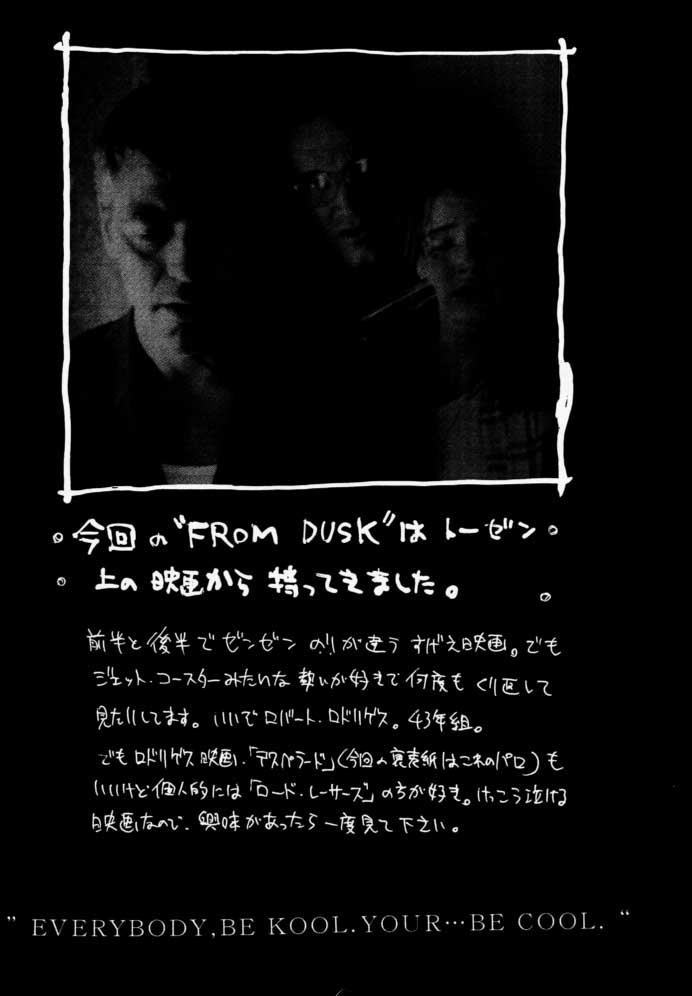 。今回の"FROM DUSK"はトーゼン。
。上の映画から持ってきました。
前半と後半でゼンゼンノリが違うすげえ映画。でも
ジェット・コースターみたいな勢いが好きで何度もくり返して
見たりしてます。いいでロバート・ロドリゲス。43年組。
でもロドリゲス映画.「デスペラード」(今回の裏表紙はこれのパロ)も
いいけど個人的には「ロード・レーサーズ」の方が好き。けっこう泣ける
映画なので、興味があったら一度見て下さい。
" EVERYBODY,BE KOOL.YOUR…BE COOL. "